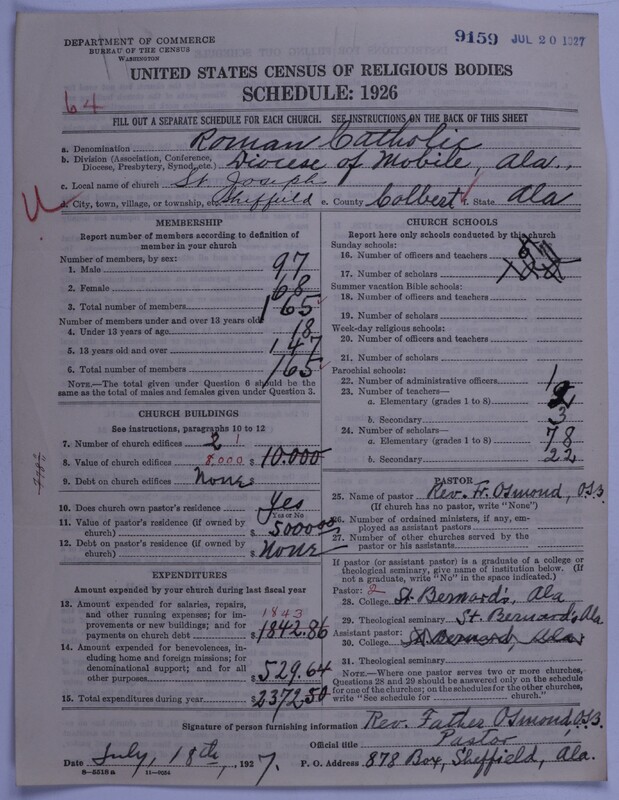 DEPARTMENT OF COMMERCE
BUREAU OF THE CENSUS
WASHINGTON
9159 JUL 20 1927
UNITED STATES CENSUS OF RELIGIOUS BODIES
SCHEDULE: 1926
64
FILL OUT A SEPARATE SCHEDULE FOR EACH CHURCH. SEE INSTRUCTIONS ON THE BACK OF THIS SHEET
a. Denomination Roman Catholic
b. Division (Association, Conference, Diocese, Presbytery, Synod, etc.) Diocese of Mobile, Ala.,
c. Local name of church St. Joseph
d. City, town, village, or township, etc. Sheffield e. County Colbert f. State Ala
MEMBERSHIP
Report number of members according to definition of member in your church
Number of members, by sex:
1. Male 97
2. Female 68
3. Total number of members 165
Number of members under and over 13 years old:
4. Under 13 years of age 18
5. 13 years old and over 147
6. Total number of members 165
NOTE.—The total given under Question 6 should be the same as the total of males and females given under Question 3.
CHURCH BUILDINGS
See instructions, paragraphs 10 to 12
7. Number of church edifices 2 1
8. Value of church edifices 8,000 $ 10.000
9. Debt on church edifices None
10. Does church own pastor's residence? Yes
Yes or No
11. Value of pastor's residence (if owned by church) $ 5000.00
12. Debt on pastor's residence (if owned by church) $ None
EXPENDITURES
Amount expended by your church during last fiscal year
13. Amount expended for salaries, repairs, and other running expenses; for improvements or new buildings; and for payments on church debt 1843 $ 1842.86
14. Amount expended for benevolences, including home and foreign missions; for denominational support; and for all other purposes $ 529.64
15. Total expenditures during year $ 2372.50
CHURCH SCHOOLS
Report here only schools conducted by this church
Sunday schools:
16. Number of officers and teachers
17. Number of scholars
Summer vacation Bible schools:
18. Number of officers and teachers
19. Number of scholars
Week-day religious schools:
20. Number of officers and teachers
21. Number of scholars
Parochial schools:
22. Number of administrative officers 1
23. Number of teachers—
a. Elementary (grades 1 to 8) 2
b. Secondary 3
24. Number of scholars—
a. Elementary (grades 1 to 8) 78
b. Secondary 22
PASTOR
25. Name of pastor Rev. Fr. Osmond, O.S.B.
(If church has no pastor, write "None")
26. Number of ordained ministers, if any, employed as assistant pastors
27. Number of other churches served by the pastor or his assistants
If pastor (or assistant pastor) is a graduate of a college or theological seminary, give name of institution below. (If not a graduate, write "No" in the space indicated.)
Pastor: 2
28. College St. Bernard's, Ala
29. Theological seminary St. Bernard's, Ala
Assistant pastor:
30. College St. Bernard, Ala
31. Theological seminary
NOTE.—Where one pastor serves two or more churches, Questions 28 and 29 should be answered only on the schedule for one of the churches; on the schedules for the other churches, write "See schedule for church."
Signature of person furnishing information Rev. Father Osmond, O.S.B.
Official title Pastor
Date July, 18th, 1927. P. O. Address 878 Box, Sheffield, Ala.
8-5518a 11-9054